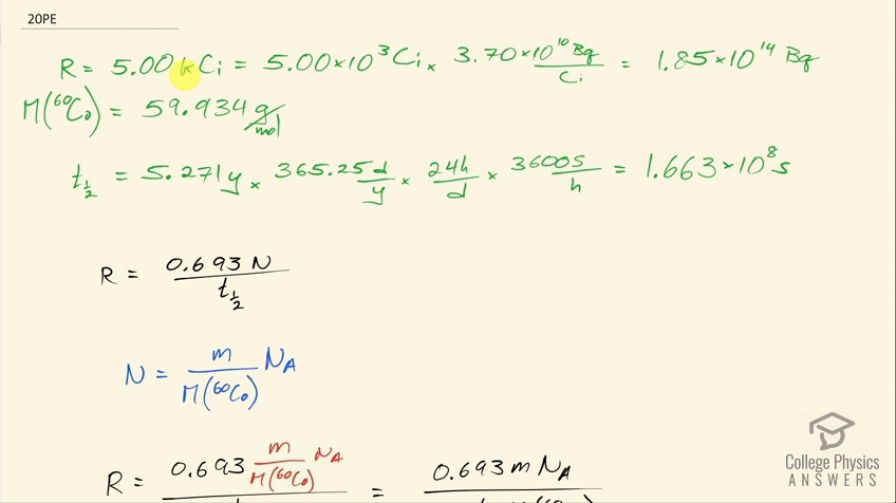 20PE
R = 5.00 kCi = 5.00×10³ Ci × 3.70×10¹⁰ Bq/Ci = 1.85×10¹⁴ Bq
M(⁶⁰Co) = 59.934 g/mol
t½ = 5.271y × 365.25d/y × 24h/d × 3600s/h = 1.663×10⁸ s
R = 0.693 N/t½
N = m/M(⁶⁰Co) N_A
R = 0.693 m/M(⁶⁰Co) N_A = 0.693 m N_A
College Physics
ANSWERS